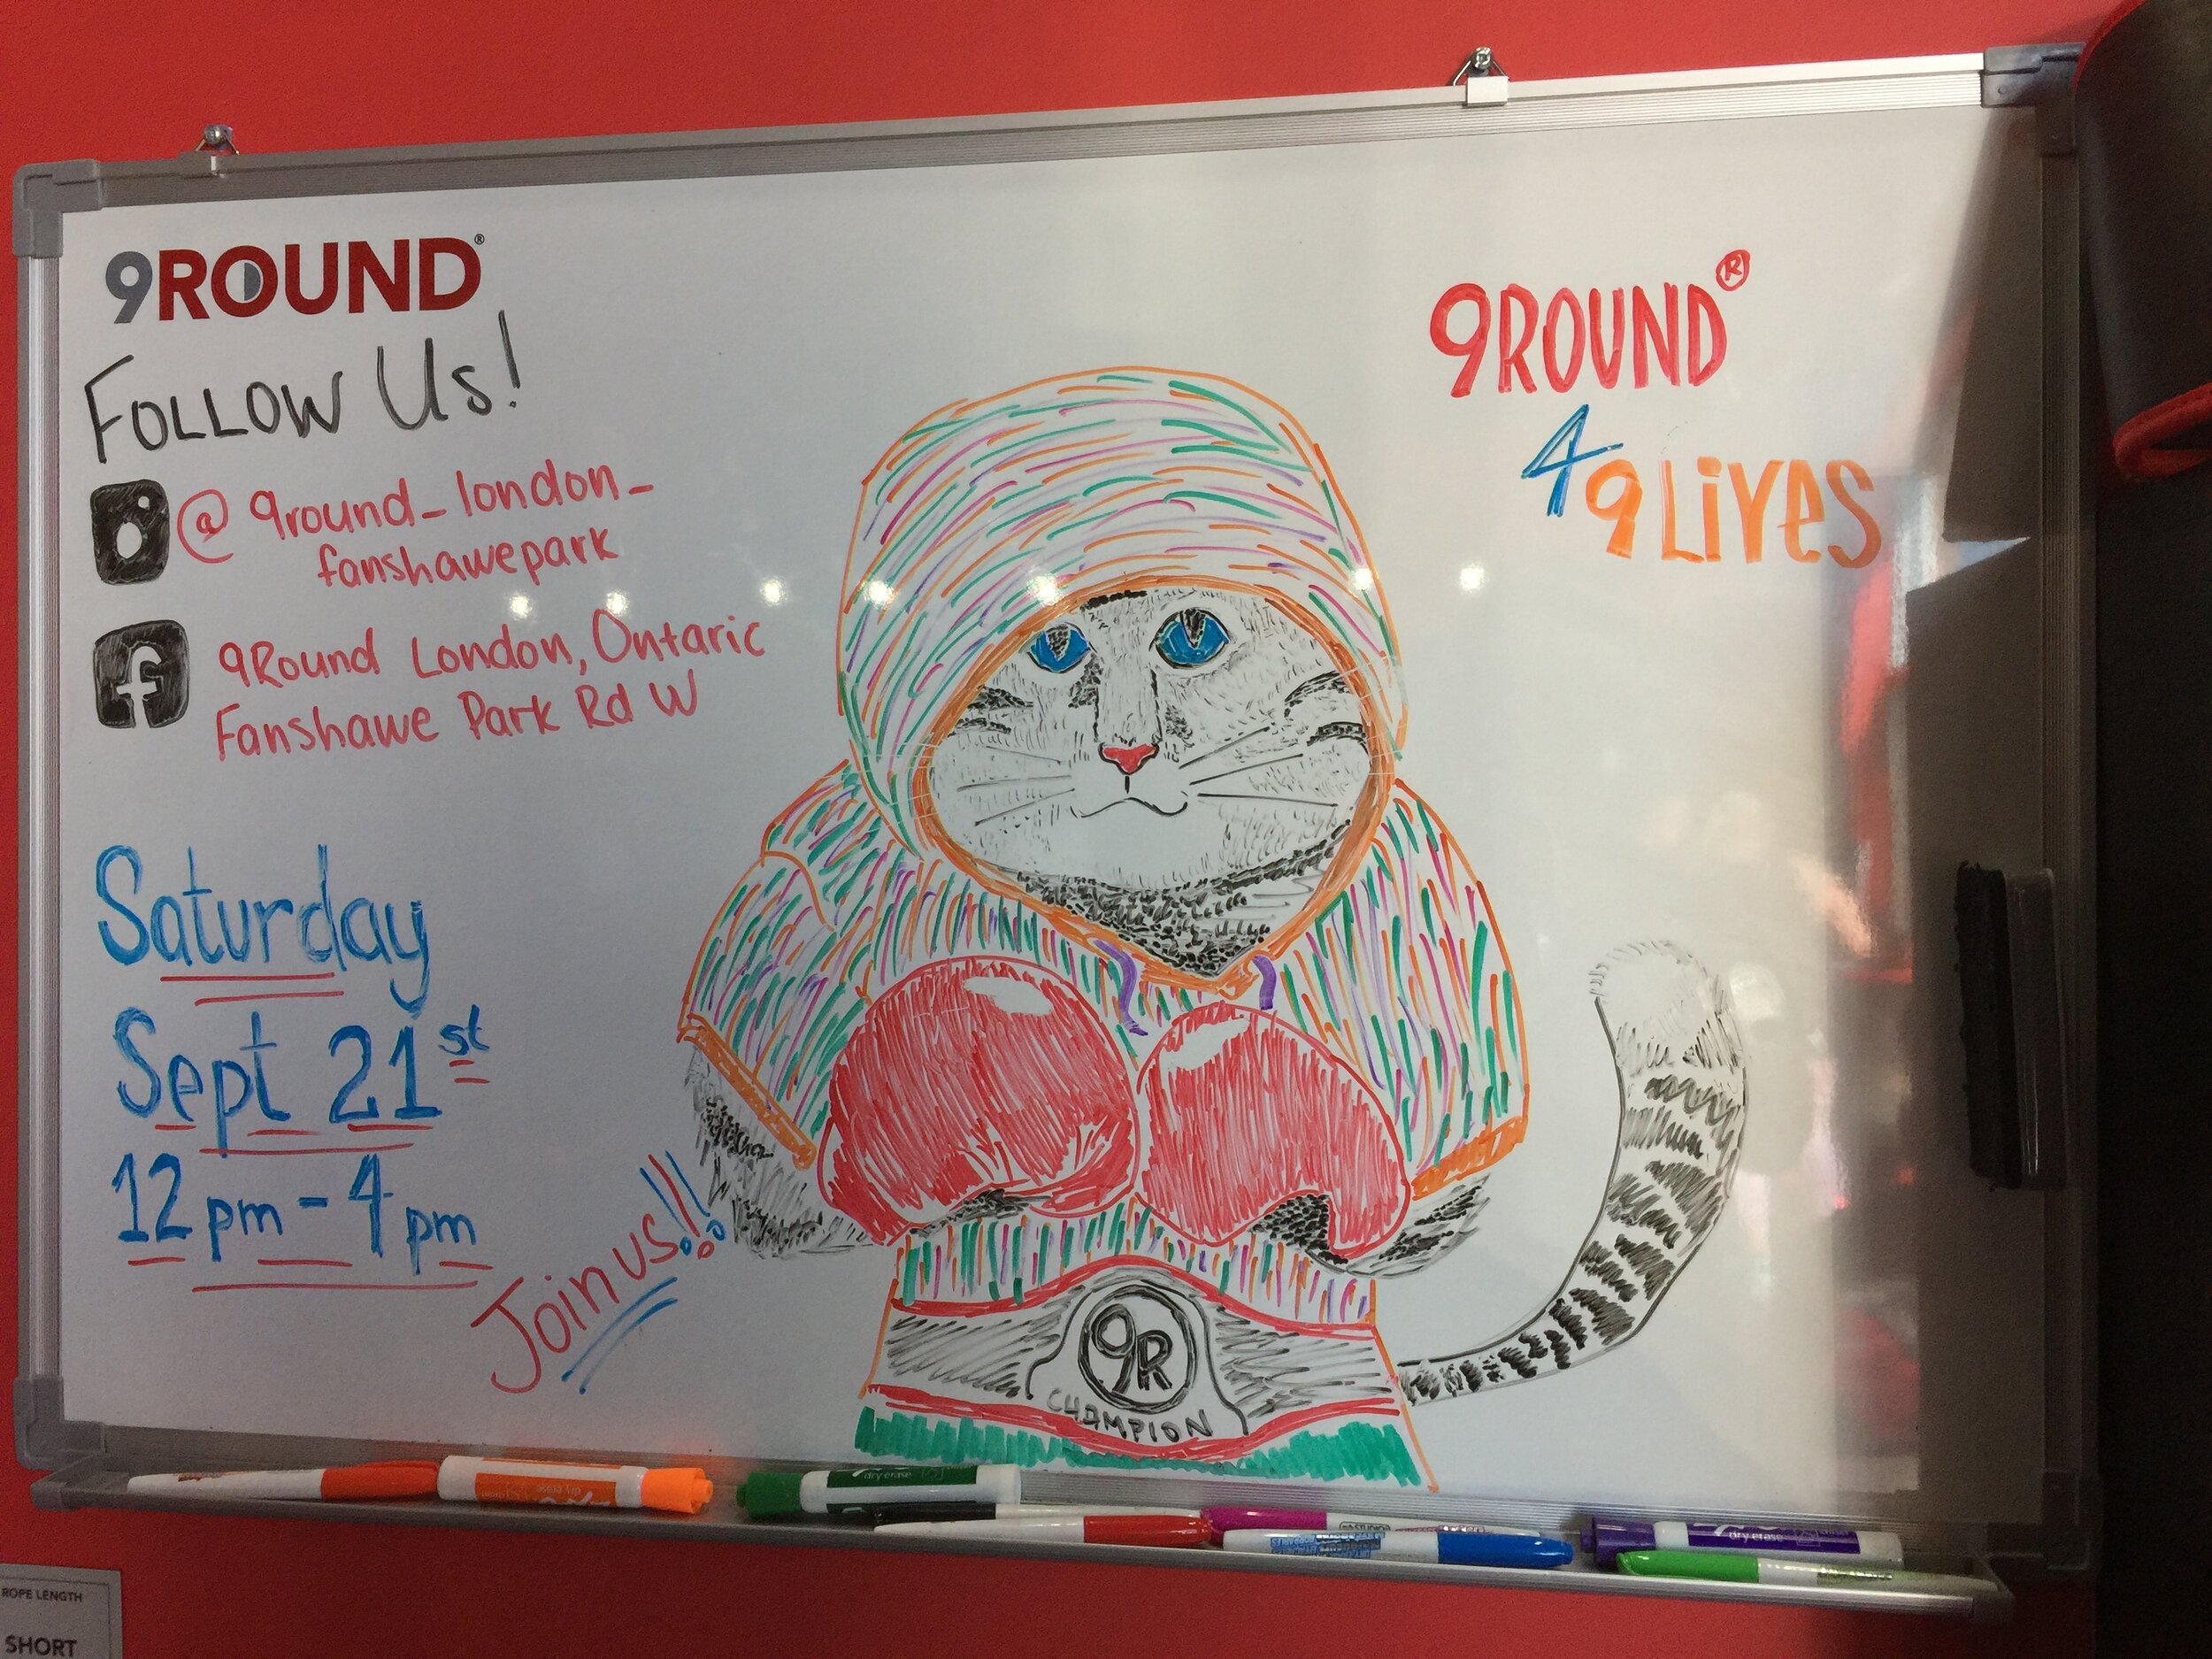 9ROUND®
FOLLOW US!
@ 9round_london_
fanshawepark
f
9Round London, Ontario
Fanshawe Park Rd W
Saturday
Sept 21st
12pm - 4pm
Join us!!!
9ROUND®
4
9 LiVeS
9R
CHAMPION
dry erase
dry erase
dry erase
ROPE LENGTH
SHORT